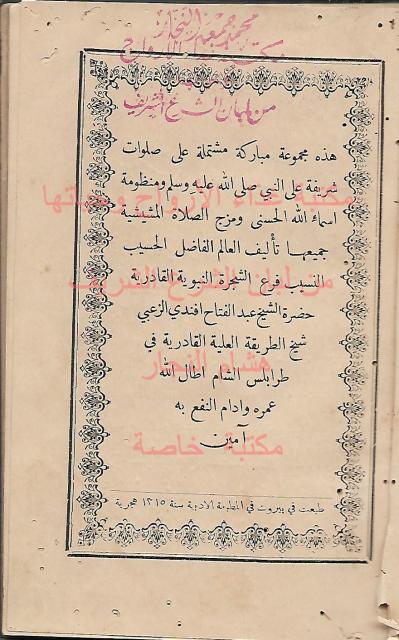 محمد جمعه النجار
مكتبة غذاء الأرواح
من لبنان الشرع الشريف
هذه مجموعة مباركة مشتملة على صلوات
شريفة على النبي صلى الله عليه وسلم ومنظومة
اسماء الله الحسنى ومزج الصلاة المشيشية
مكتبة غذاء الأرواح وحياتها
جميعها تأليف العالم الفاضل الحسيب
النسيب فرع الشجرة النبوية القادرية
من لبنان الشرع الشريف
حضرة الشيخ عبد الفتاح افندي الزعبي
شيخ الطريقة العلية القادرية في
هشام النجار
طرابلس الشام اطال الله
عمره وادام النفع به
آمين
مكتبة خاصة
طبعت في بيروت في المطبعة الادبية سنة ١٣١٥ هجرية